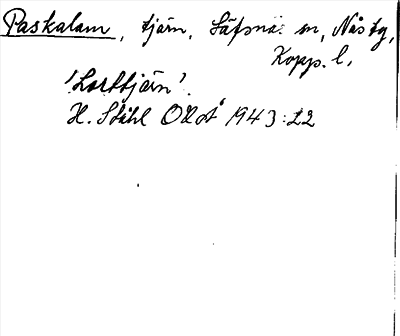 Paskalam, tjärn, Säfsnäs sn, Nås tg,
Kopp. l.
'Lorttjärn'.
H. Ståhl ONoÅ 1943:22